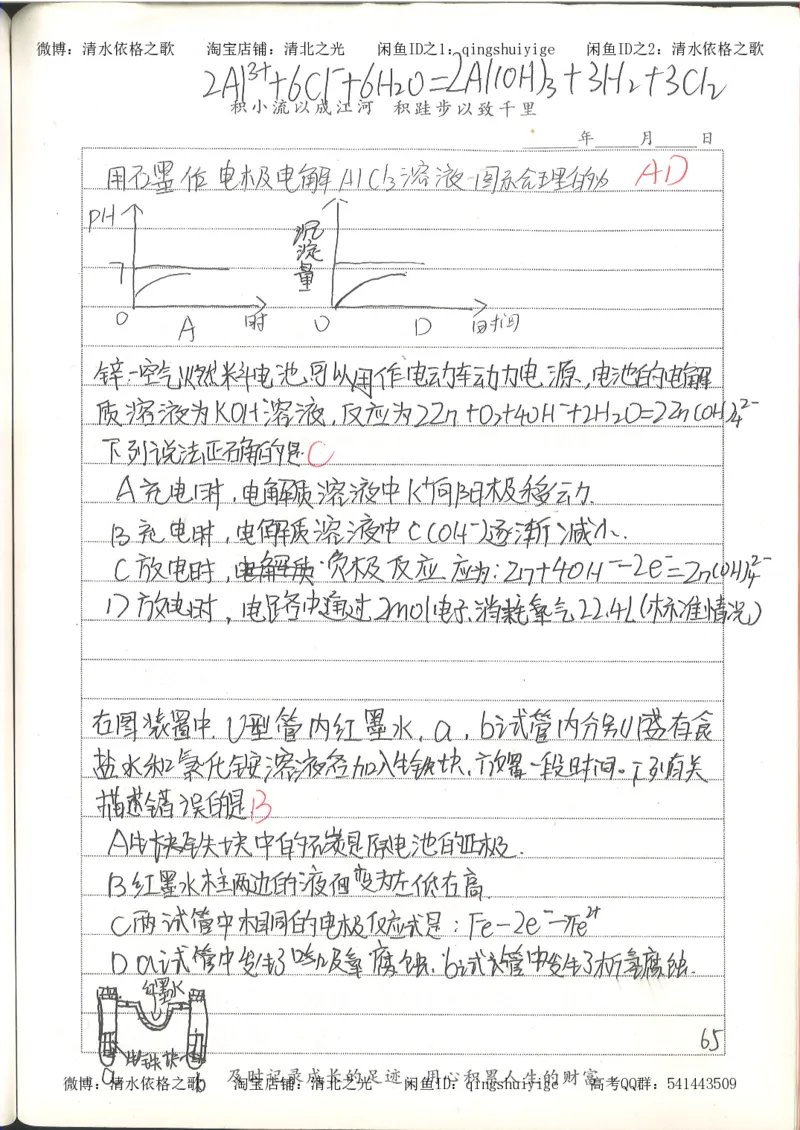 微博：清水依格之歌 淘宝店铺：清北之光 闲鱼ID之1：qingshuiyige 闲鱼ID之2：清水依格之歌
2Al³⁺+6Cl⁻+6H₂O=2Al(OH)₃+3H₂+3Cl₂
积小流以成江河 积跬步以致千里
年 月 日
用石墨作电极电解AlCl₃溶液图示合理的为 AD
PH 7 0 A 时
沉淀量 0 D 时间
锌-空气燃料电池可以用作电动车动力电源，电池的电解
质溶液为KOH溶液，反应为2Zn+O₂+4OH⁻+2H₂O=2Zn(OH)₄²⁻
下列说法正确的是C
A充电时，电解质溶液中K⁺向阳极移动.
B充电时，电解质溶液中C(OH⁻)逐渐减小.
C放电时，负极反应应为：Zn+4OH⁻-2e⁻=Zn(OH)₄²⁻
D放电时，电路中通过2mol电子，消耗氧气22.4L(标准情况)
在图装置中，U型管内红墨水，a，b试管内分别盛有食
盐水和氯化铵溶液各加入生铁块，放置一段时间。下列有关
描述错误的是B
A生铁块中的石炭是原电池的正极.
B红墨水柱两边的液面变为左低右高.
C两试管中相同的电极反应式是：Fe-2e⁻→Fe²⁺
D a试管中发生了吸氧腐蚀，b试管中发生了析氢腐蚀.
红墨水
生铁块
a b
65
及时记录成长的足迹 用心积累人生的财富
微博：清水依格之歌 淘宝店铺：清北之光 闲鱼ID：qingshuiyige 高考QQ群：541443509